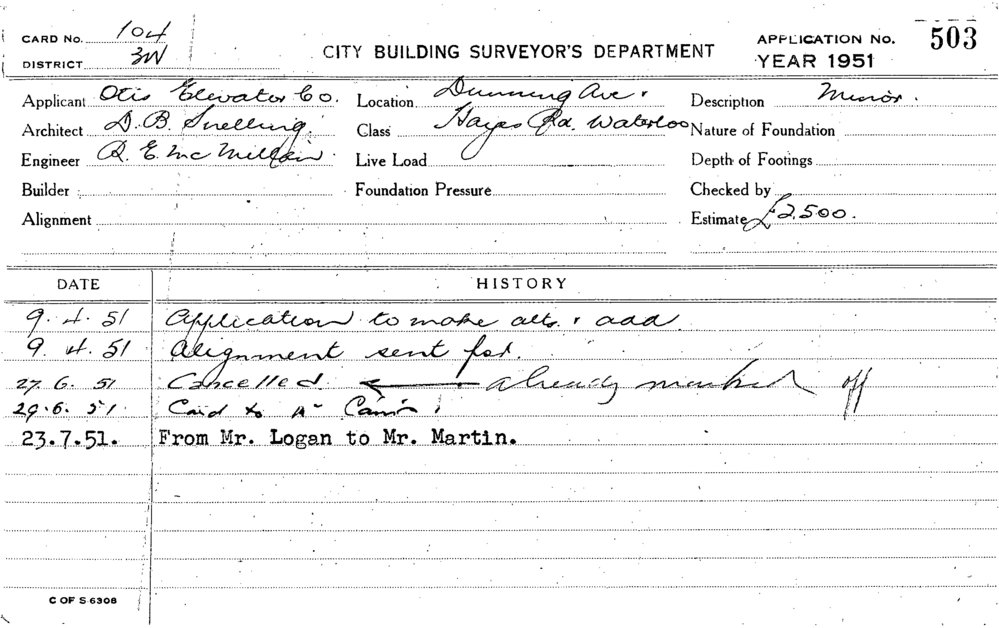 CARD No. 104
DISTRICT 3W
CITY BUILDING SURVEYOR'S DEPARTMENT
APPLICATION No. 503
YEAR 1951
Applicant Otis Elevator Co. Location Dunning Ave. Description Minor.
Architect D. B. Snelling. Class Hayes Rd. Waterloo Nature of Foundation
Engineer R. E. McMillan. Live Load Depth of Footings
Builder Foundation Pressure Checked by
Alignment Estimate £2,500.
DATE HISTORY
9. 4. 51 Application to make alts. & add
9. 4. 51 Alignment sent for.
27. 6. 51 Cancelled. ← already marked off
29. 6. 51. Card to Mr
23.7.51. From Mr. Logan to Mr. Martin.
C OF S 6308